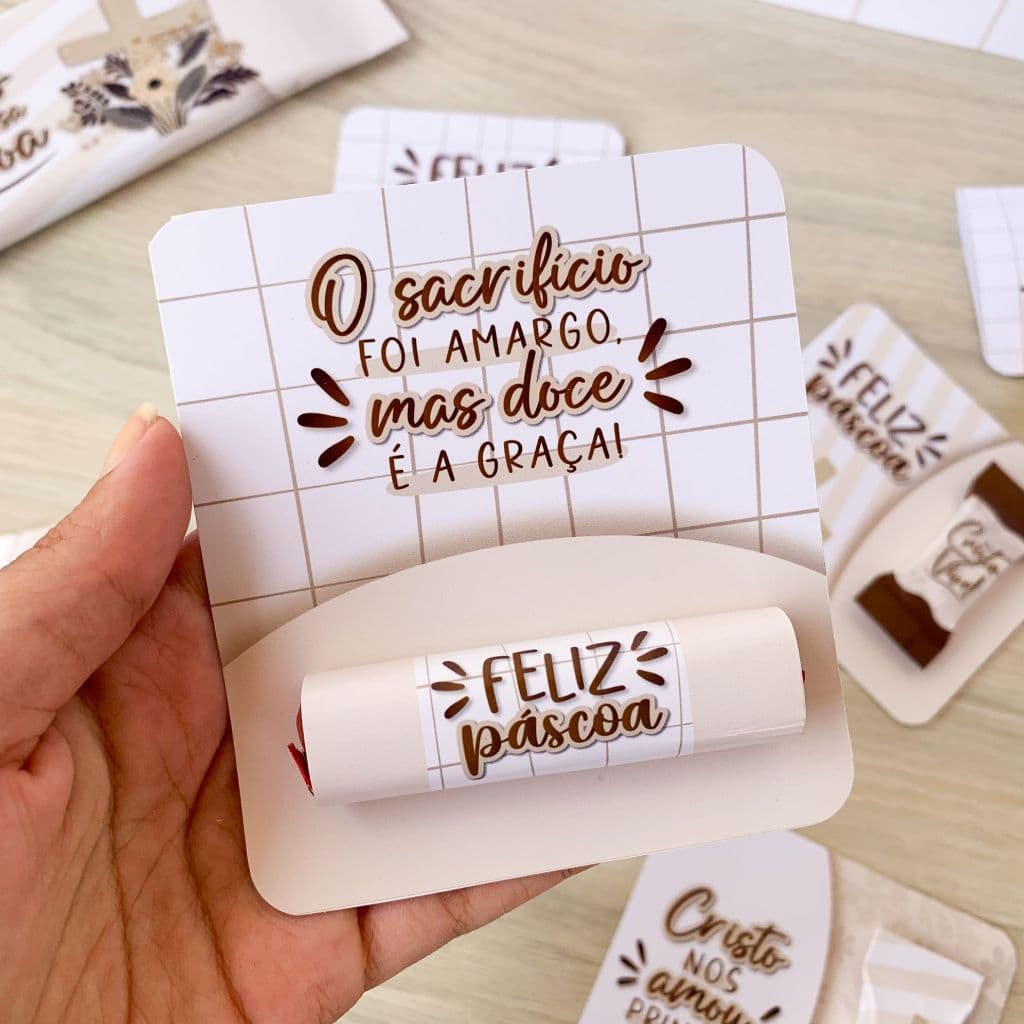 FELIZ
O sacrifício
FOI AMARGO,
mas doce
É A GRAÇA!
FELIZ
páscoa
FELIZ
páscoa
Cristo
NOS
amou